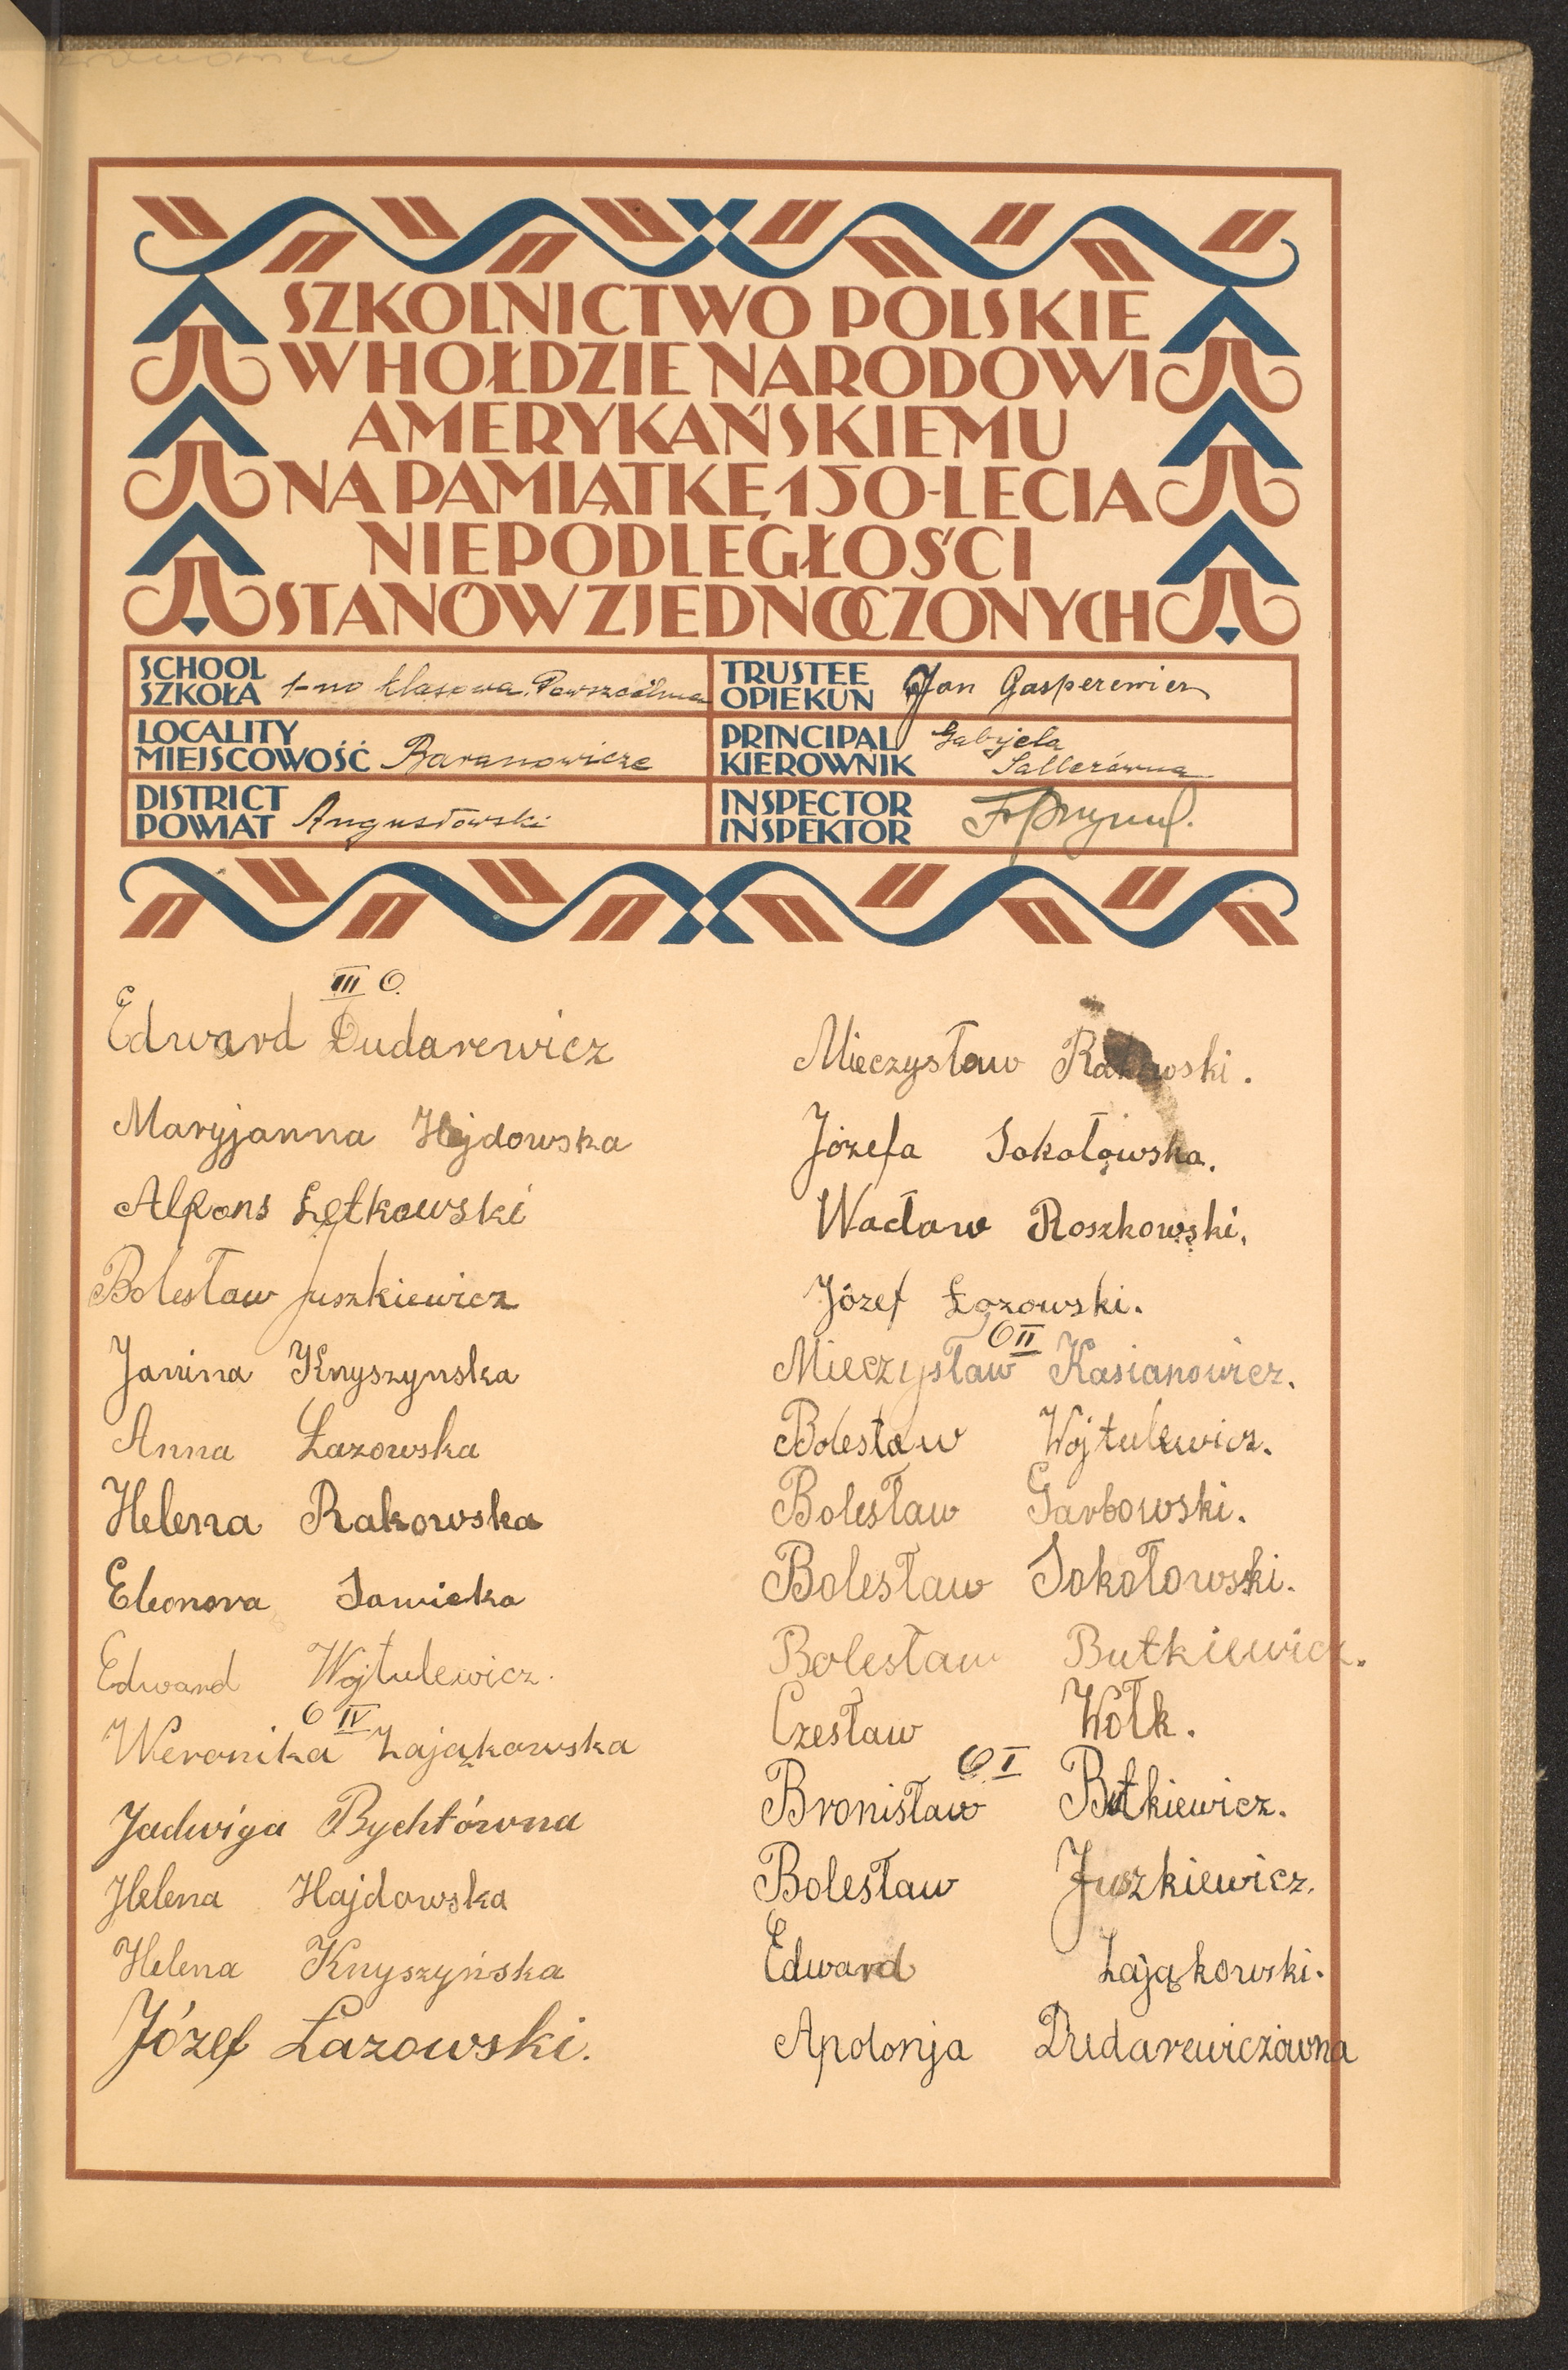 SZKOLNICTWO POLSKIE
W HOŁDZIE NARODOWI
AMERYKAŃSKIEMU
NA PAMIĄTKĘ 150-LECIA
NIEPODLEGŁOŚCI
STANÓW ZJEDNOCZONYCH
SCHOOL
SZKOŁA 1-no klasowa Powszechna
LOCALITY
MIEJSCOWOŚĆ Baranowicze
DISTRICT
POWIAT Augustowski
TRUSTEE
OPIEKUN Jan Gasperewicz
PRINCIPAL Gabrjela
KIEROWNIK Sallerówna
INSPECTOR
INSPEKTOR
III O.
Edward Dudarewicz
Maryjanna Hejdowska
Alfons Łętkowski
Bolesław Juszkiewicz
Janina Knyszynska
Anna Łazowska
Helena Rakowska
Eleonora Sawicka
Edward Wojtulewicz.
O IV
Weronika Zająkowska
Jadwiga Rychtówna
Helena Hajdowska
Helena Knyszyńska
Józef Łazowski.
Mieczysław Rakowski.
Józefa Sokołowska.
Wacław Roszkowski.
Józef Łozowski.
O II
Mieczysław Kasianowicz.
Bolesław Wojtulewicz.
Bolesław Garbowski.
Bolesław Sokołowski.
Bolesław Butkiewicz.
Czesław Wołk.
O I
Bronisław Butkiewicz.
Bolesław Juszkiewicz.
Edward Zająkowski.
Apolonja Dudarewiczówna